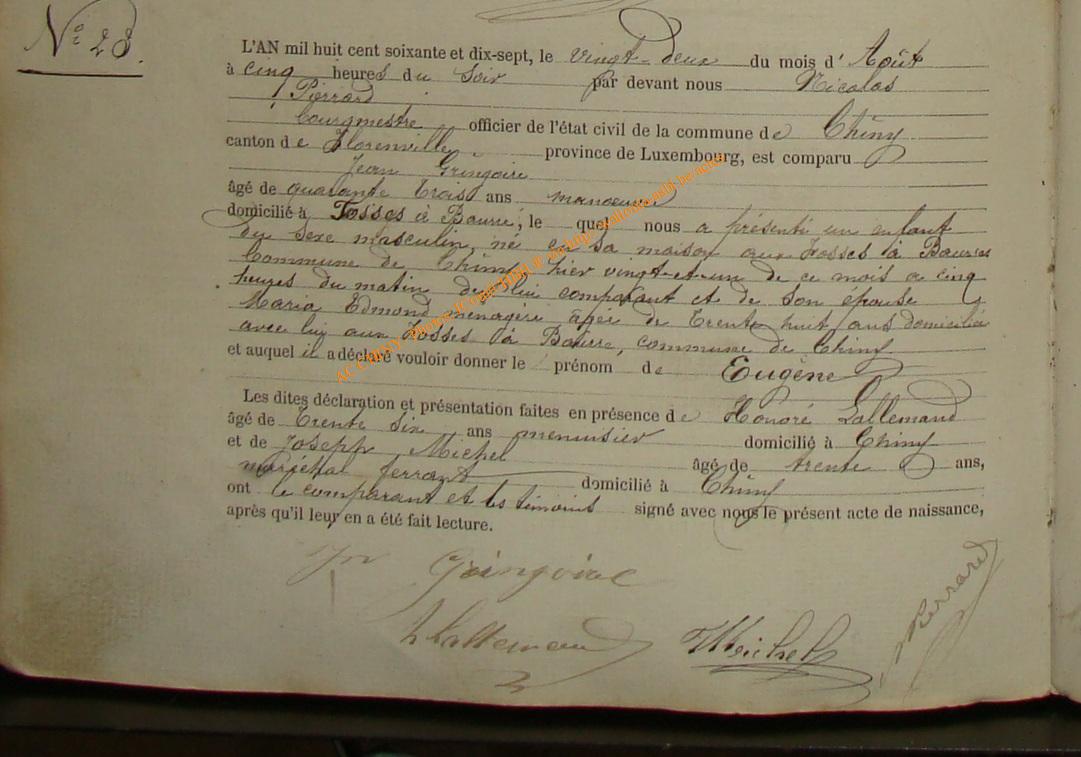 N° 23.
L'AN mil huit cent soixante et dix-sept, le vingt-deux du mois d'Août
à cinq heures du soir par devant nous Nicolas
Pierrard
bourgmestre officier de l'état civil de la commune de Chiny
canton de Florenville province de Luxembourg, est comparu
Jean Gringoire
âgé de quarante trois ans manoeuvre
domicilié à Fosses à Baurre, le quel nous a présenté un enfant
du sexe masculin, né en sa maison aux Fosses à Baurres
Commune de Chiny hier vingt-et-un de ce mois a cinq
heures du matin de lui comparant et de son épouse
Maria Edmond ménagère âgée de trente huit ans domiciliée
avec lui aux Fosses à Baurre, commune de Chiny
et auquel il a déclaré vouloir donner le prénom de Eugène
Les dites déclaration et présentation faites en présence de Honoré Lallemand
âgé de trente six ans menuisier domicilié à Chiny
et de Joseph Michel âgé de trente ans,
maréchal ferrant domicilié à Chiny
ont le comparant et les témoins signé avec nous le présent acte de naissance,
après qu'il leur en a été fait lecture.
Jn Gringoire
h Lallemand
Michel
Pierrard